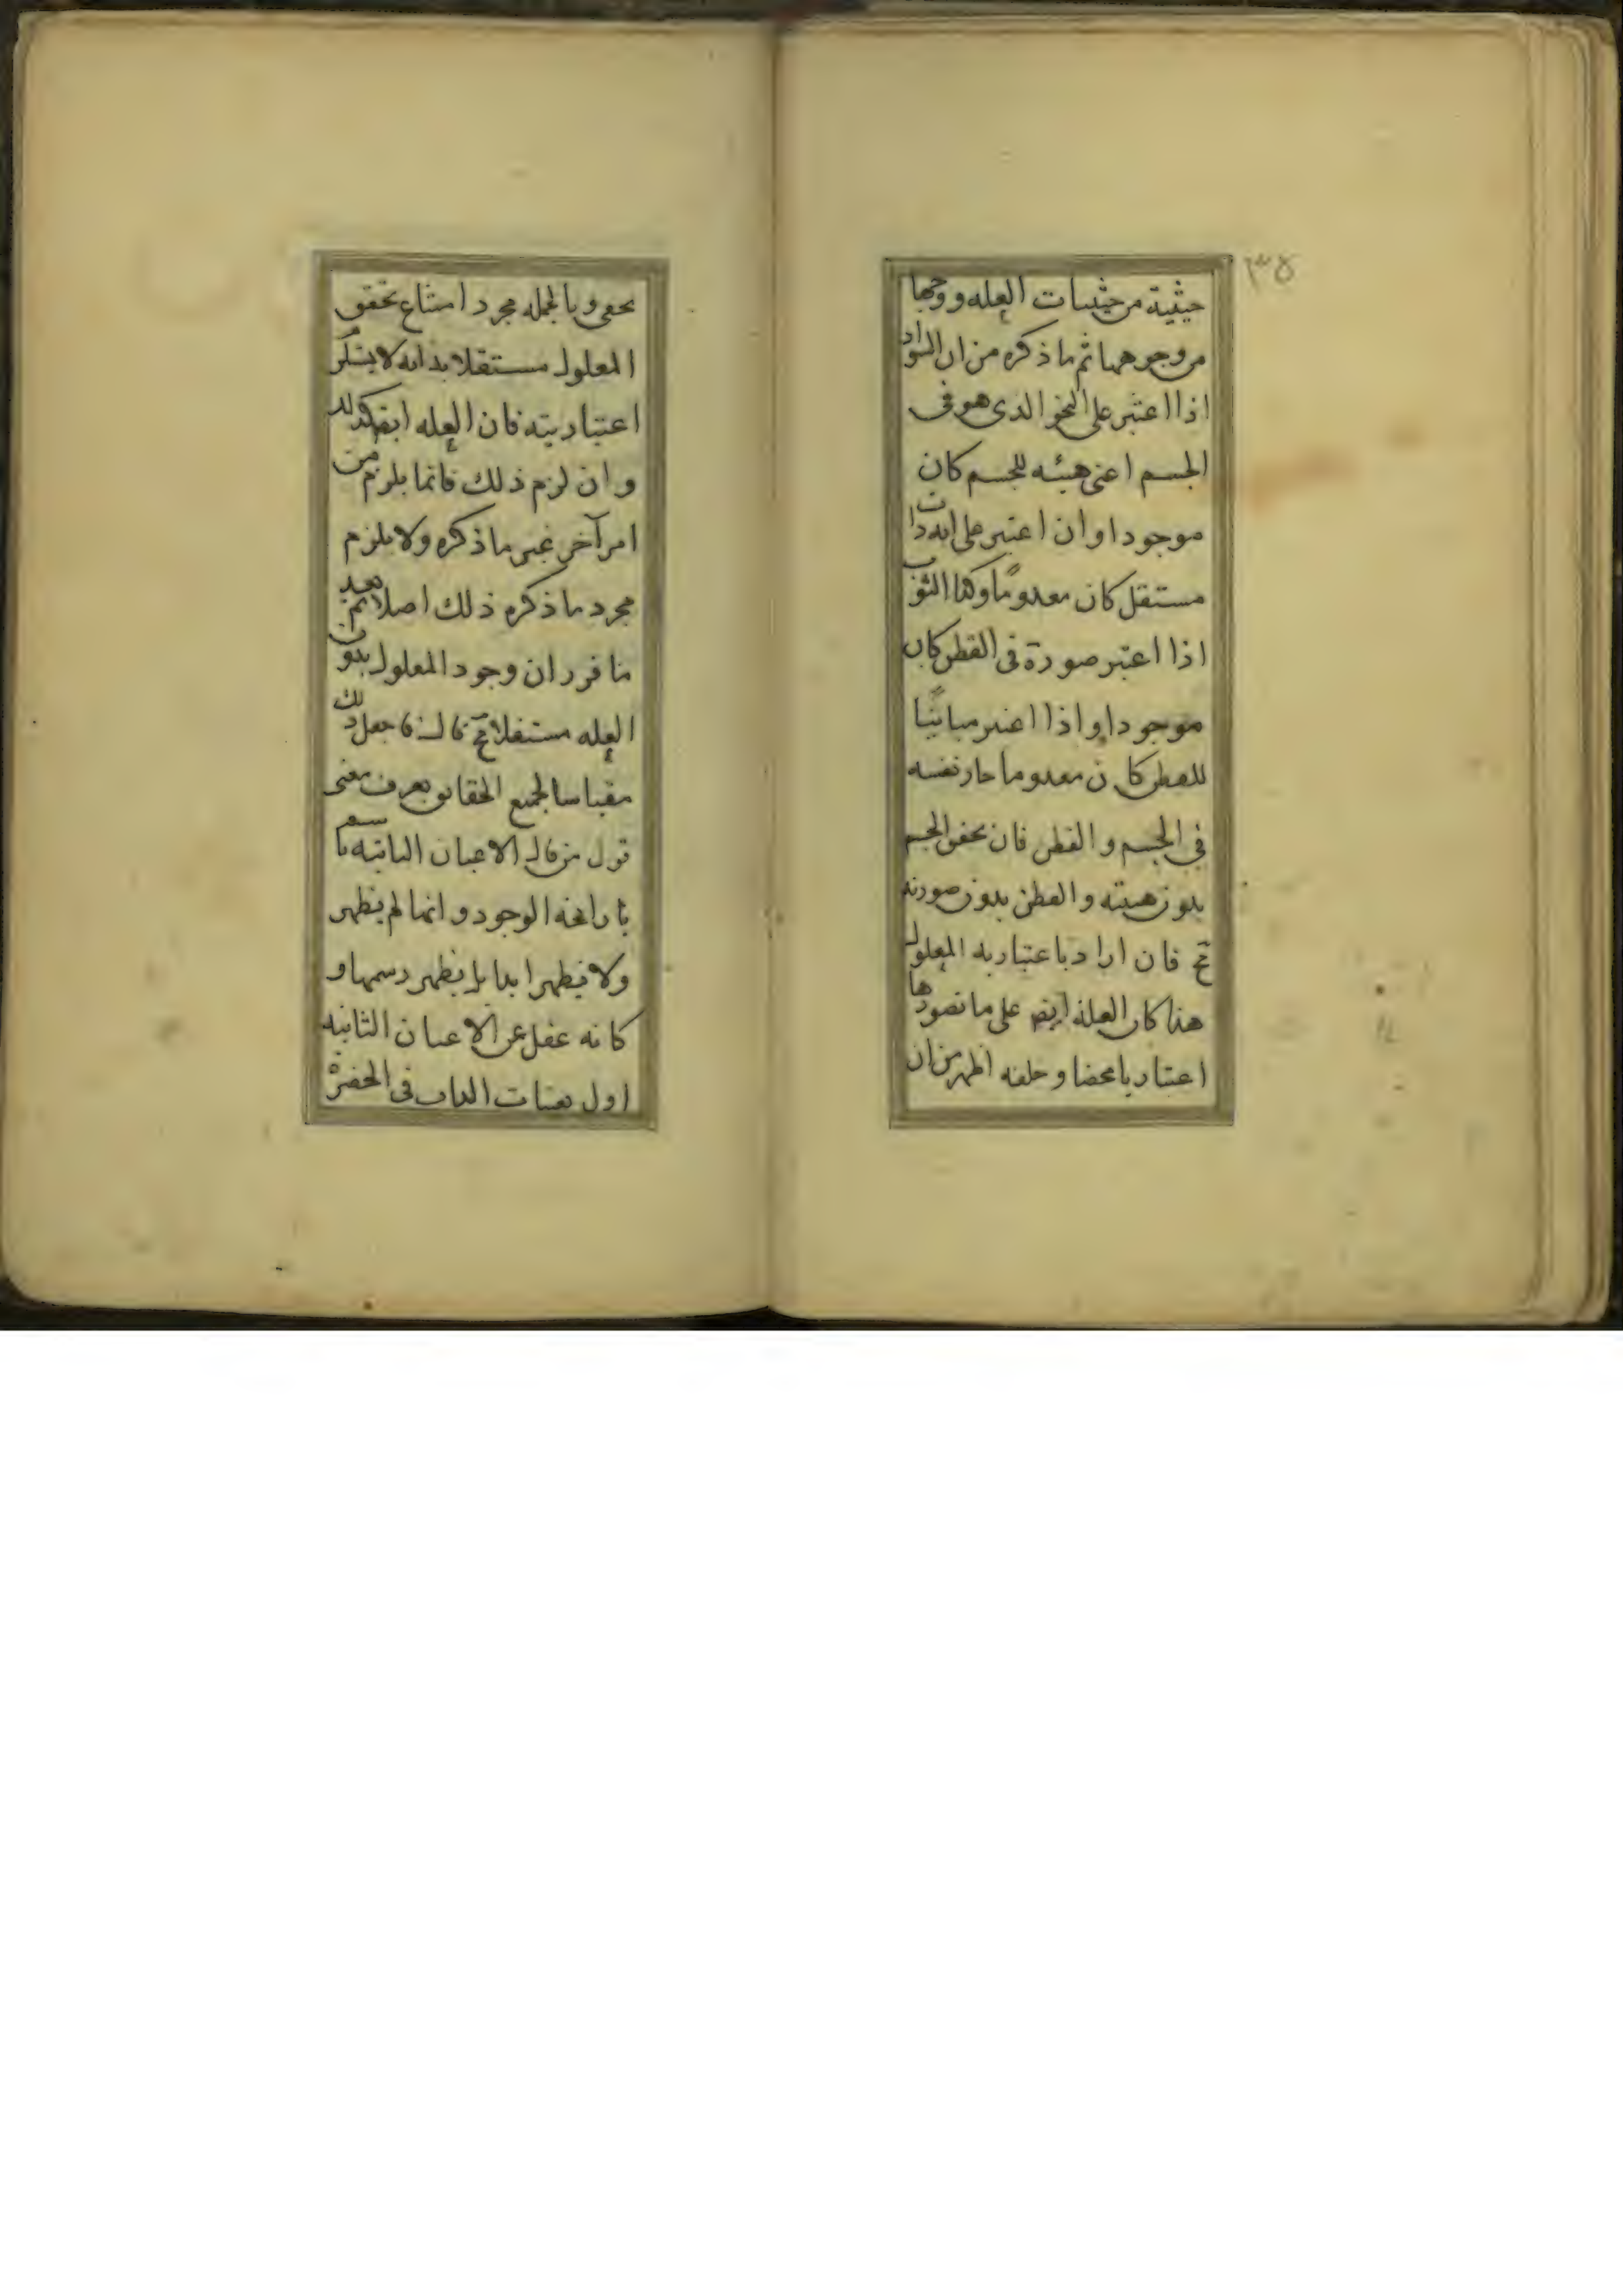 ٣٥
حيثية من حيثيات العله و وجها
من وجوهها ثم ما ذكره من ان السواد
اذا اعتبر على النحو الذى هو فى
الجسم اعنى هيئه للجسم كان
موجودا وان اعتبر على انه ذات
مستقل كان معدوما وكذا الثوب
اذا اعتبر صورة فى القطن كان
موجودا و اذا اعتبر مباينًا
للقطن كان معدوما جار نفسه
فى الجسم و القطن فان تحقق الجسم
بدون هيئته و القطن بدون صورته
مح فان اراد باعتباريه المعلول
هذا كان العلة ايضا على ما تصورها
اعتباريا محضا و خلفه اظهر من ان
يخفى و بالجمله مجرد امتناع تحقق
المعلول مستقلا بذاته لا يستلزم
اعتباريته فان العله ايضا كذلك
وان لزم ذلك فانما يلزم من
امر آخر غير ما ذكره ولا يلزم
مجرد ما ذكره ذلك اصلا ثم بعد
ما قرر ان وجود المعلول بدون
العله مستقلا مح قال فاجعل ذلك
مقياسا لجميع الحقائق تعرف معنى
قول من قال الاعيان الثابته ما شمت
رائحه الوجود و انها لم يظهر
ولا يظهر ابدا بل يظهر رسمها و
كانه غفل عن الاعيان الثابته
اول تعينات الذات فى الحضرة